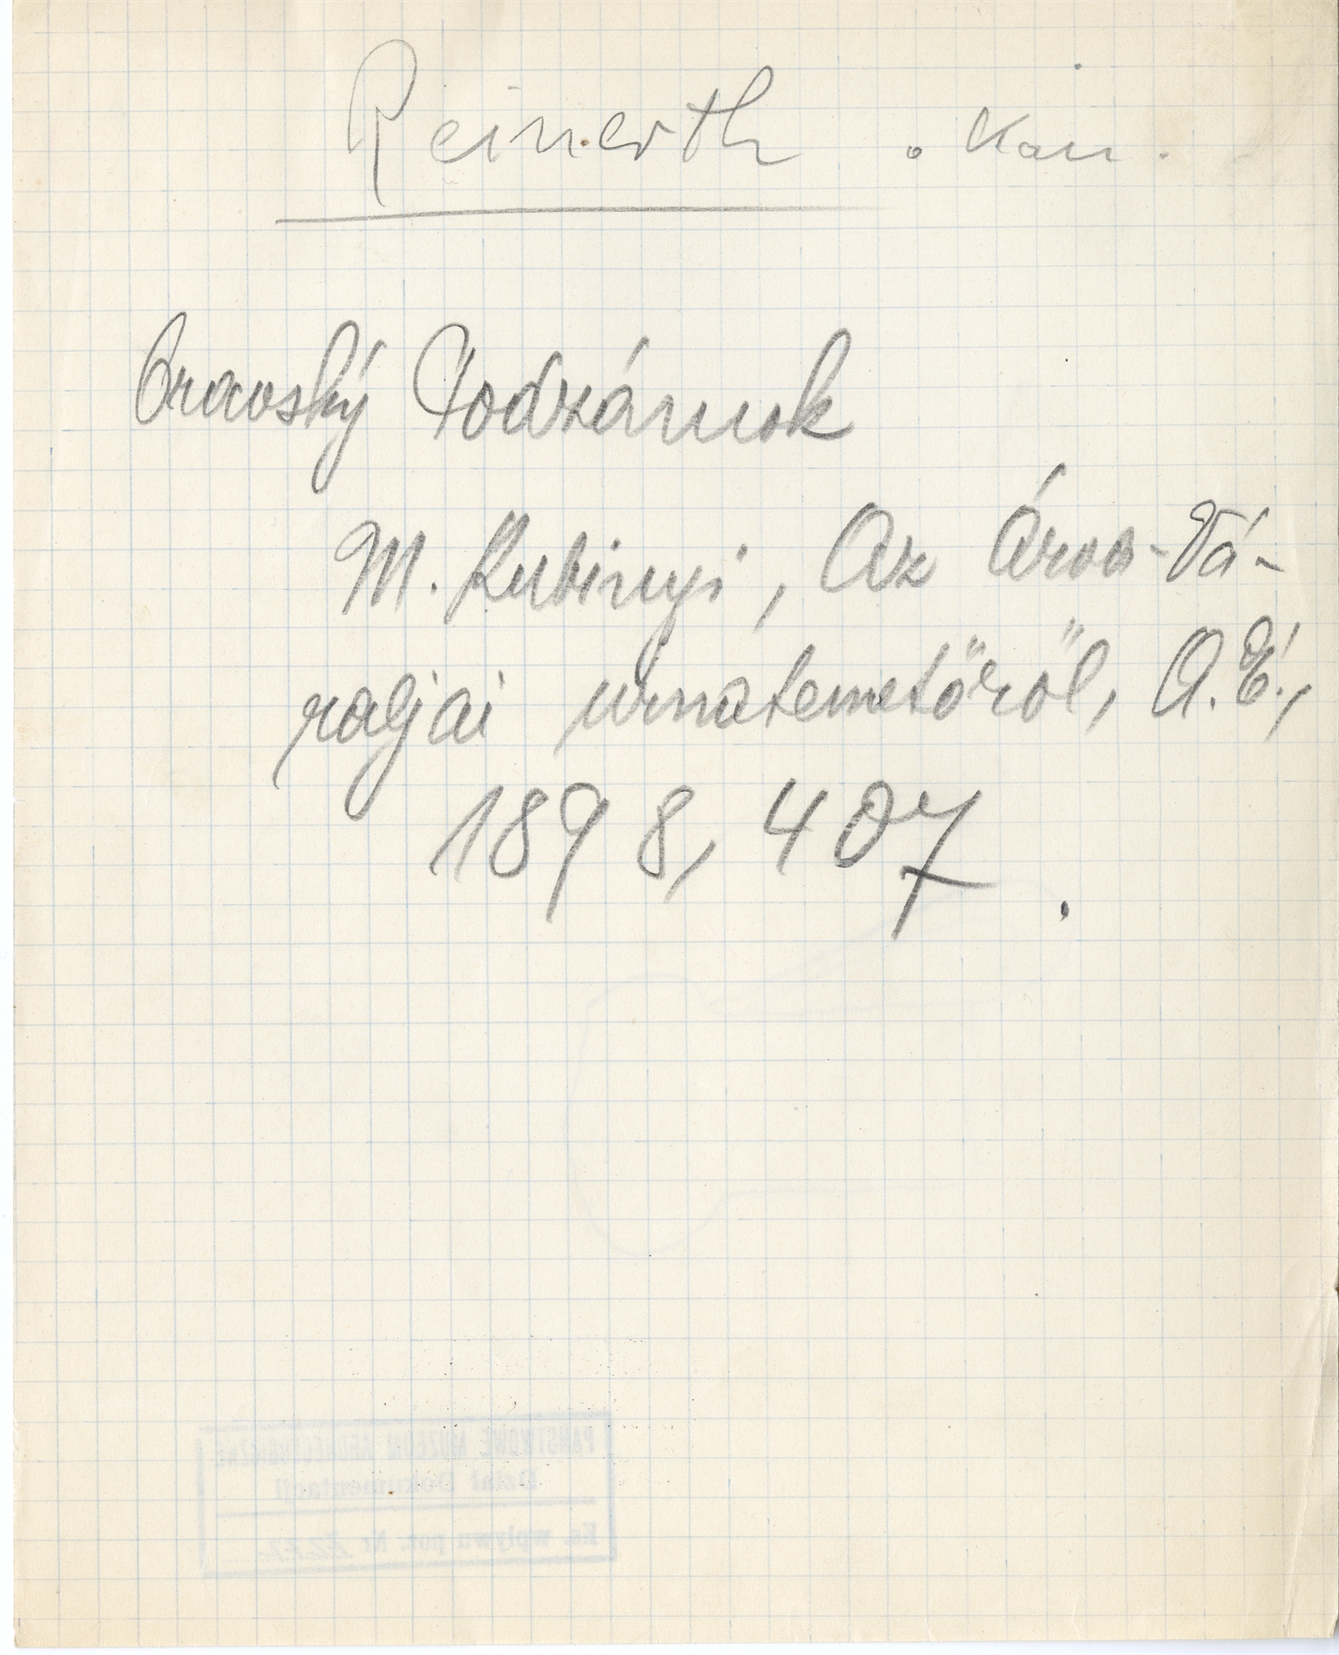 Reinerth
Oravský Podzámok
M. Kubinyi, Az Árva-Vá-
raljai urnatemetőről, A.É.,
1898, 407.
PAŃSTWOWE MUZEUM ARCHEOLOGICZNE
Dział Dokumentacji
Ks. wpływu pot. Nr